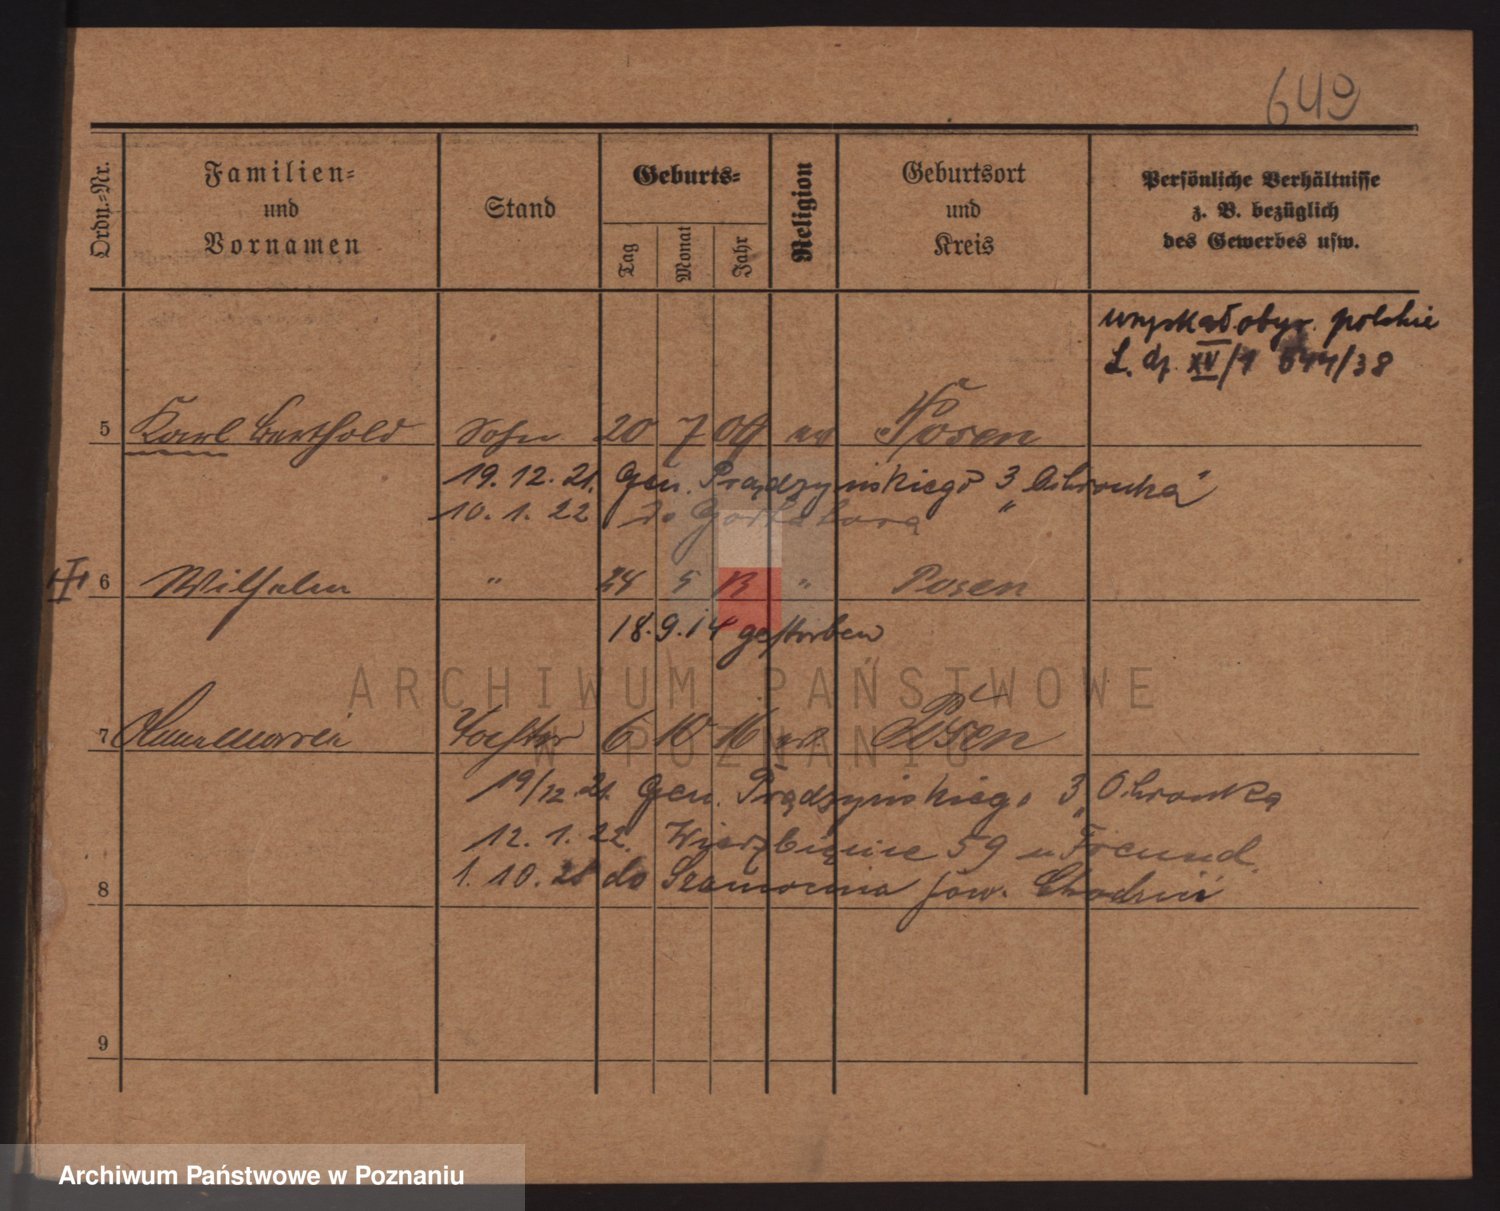 649
Ordn.-Nr.
Familien-
und
Vornamen
Stand
Geburts-
Tag
Monat
Jahr
Religion
Geburtsort
und
Kreis
Persönliche Verhältnisse
z. B. bezüglich
des Gewerbes usw.
uzyskał obyw. polskie
L. dz. XV/1 644/38
5 Karl Berthold Sohn 20 7 09 ev Posen
19.12.21. Gen. Prądzyńskiego 3 „Ochronka"
10.1.22 do
6 Wilhelm " 24 5 13 " Posen
18.9.14 gestorben
7 Annemarie Tochter 6 10 16 ev Posen
19/12.21. Gen. Prądzyńskiego 3 „Ochronka
12.1.22. Wierzbięcice 59 u Freund.
8 1.10.28 do Szamocina pow. Chodzież
9
ARCHIWUM PAŃSTWOWE
W POZNANIU
Archiwum Państwowe w Poznaniu